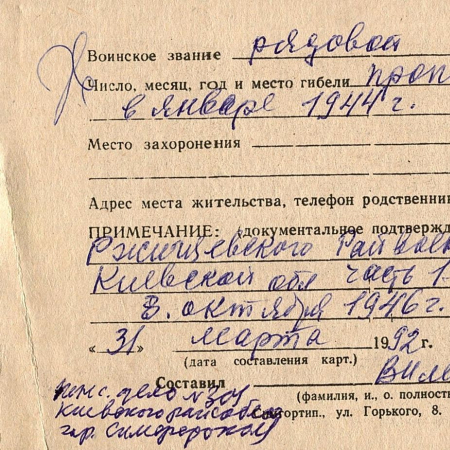 Воинское звание рядовой
Число, месяц, год и место гибели проп
в январе 1944 г.
Место захоронения
Адрес места жительства, телефон родственни
ПРИМЕЧАНИЕ: (документальное подтвержд
Ржищевского Райвоен
Киевской обл часть 1
8. октября 1946 г.
« 31 » марта 1992 г.
(дата составления карт.)
Составил Виле
(фамилия, и., о. полность
дело № 301
Киевского райсобеса
гор. Симферополя
ортип., ул. Горького, 8.